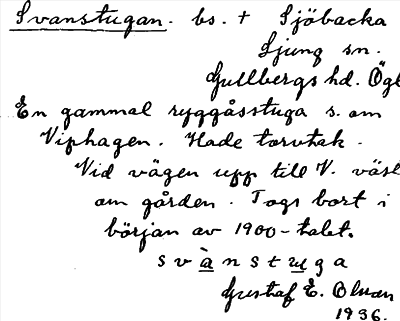 Svanstugan. bs. + Sjöbacka
Ljung sn.
Gullbergs hd. Ögl
En gammal ryggåsstuga s. om
Viphagen. Hade torvtak.
Vid vägen upp till V. väst
om gården. Togs bort i
början av 1900-talet.
svànstuga
Gustaf E. Olsson
1936.